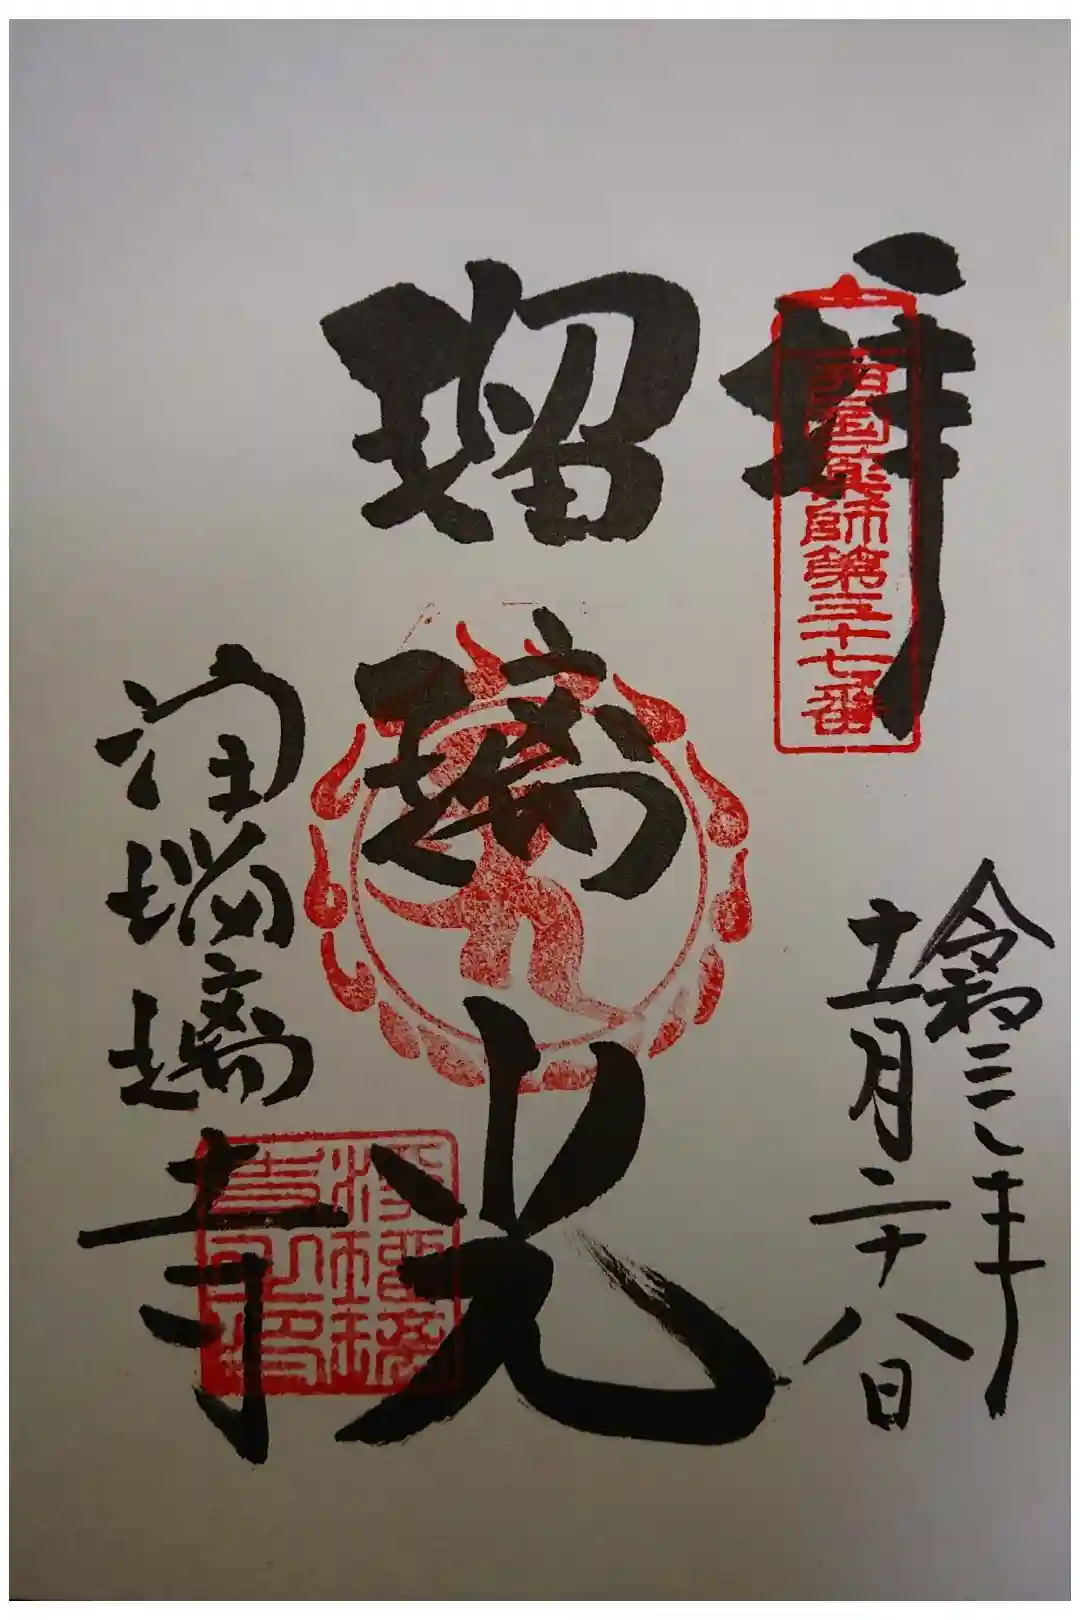 拝
西國薬師第三十七番
令和三年
十一月二十八日
瑠璃光
浄瑠璃寺